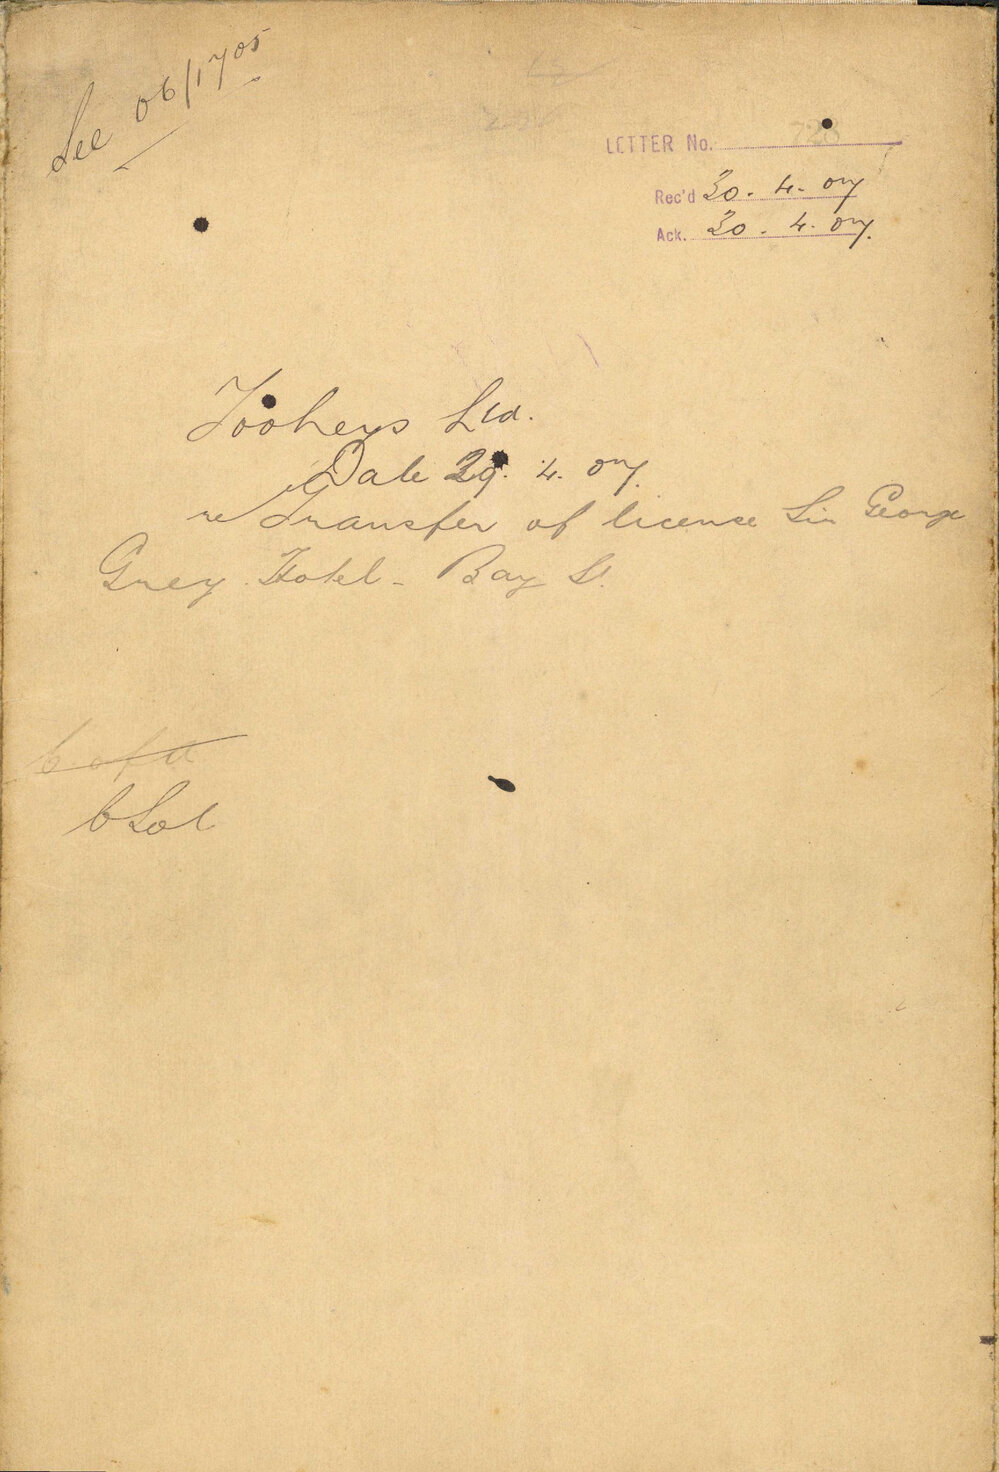 See 06/1705
LETTER No. 728
Rec'd 30. 4. 07
Ack. 30. 4. 07.
Tooheys Ltd.
Date 29. 4. 07.
re Transfer of license Sir George
Grey Hotel - Bay St.
C of A
C Sol